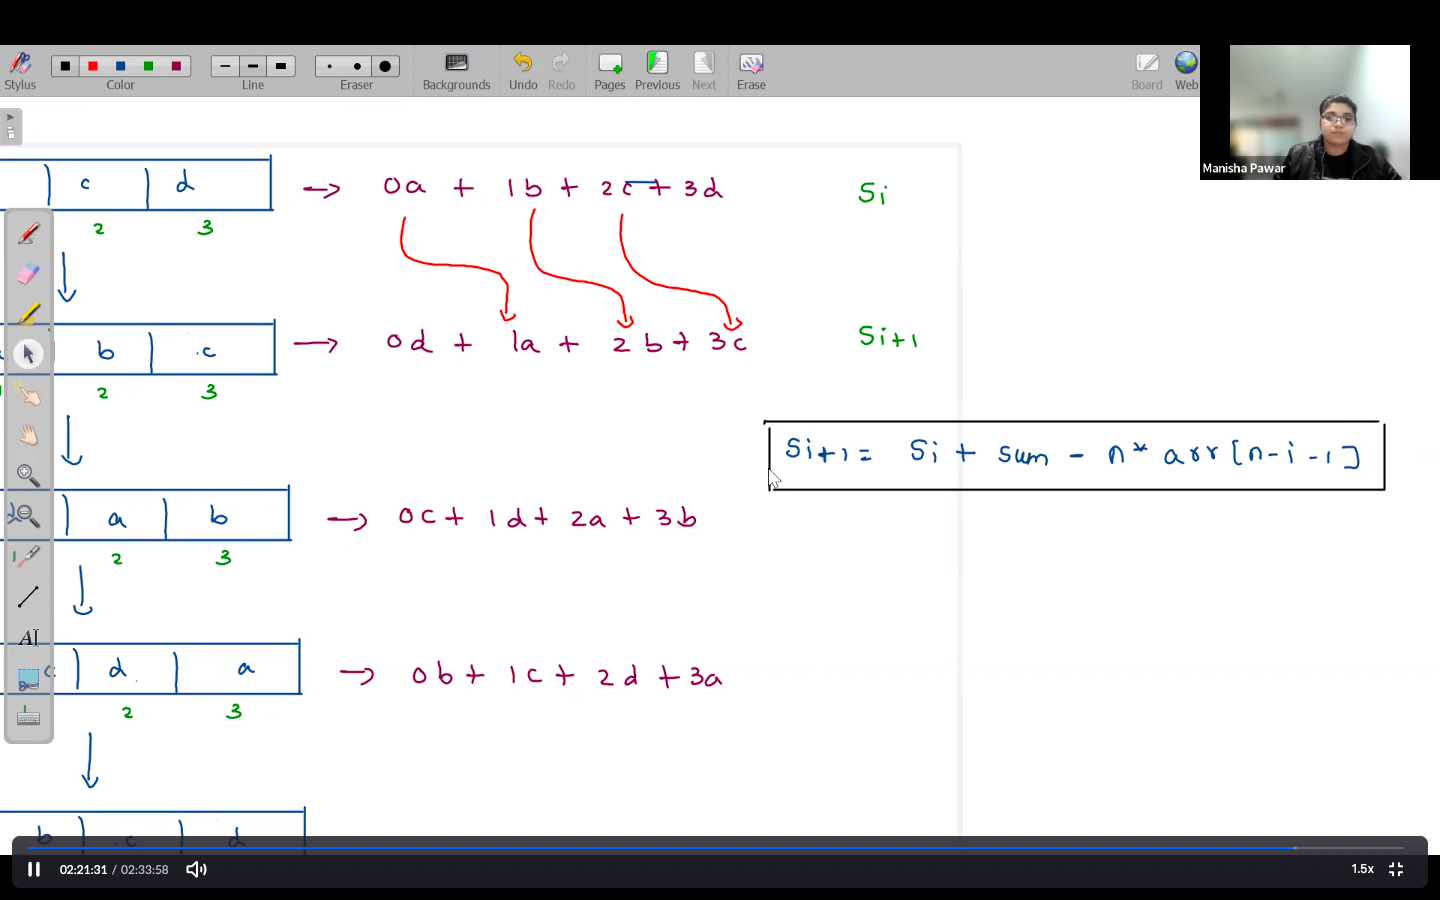 Stylus Color Line Eraser Backgrounds Undo Redo Pages Previous Next Erase Board Web
Manisha Pawar
c d → 0a + 1b + 2c + 3d Si
2 3
b c → 0d + 1a + 2b + 3c Si+1
2 3
Si+1 = Si + sum - n* arr[n-i-1]
a b → 0c + 1d + 2a + 3b
2 3
c d a → 0b + 1c + 2d + 3a
2 3
b c d
02:21:31 / 02:33:58 1.5x